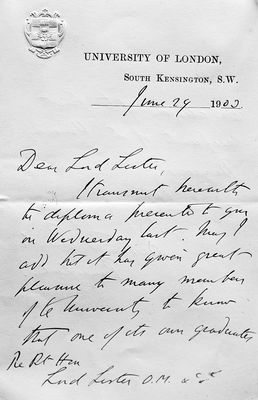 UNIVERSITY OF LONDON,
SOUTH KENSINGTON, S.W.
June 29 1903
Dear Lord Lister,
I transmit herewith
the diploma presented to you
on Wednesday last. May I
add that it has given great
pleasure to many members
of the University to know
that one of its own graduates
The Rt Hon
Lord Lister O.M. &c &c